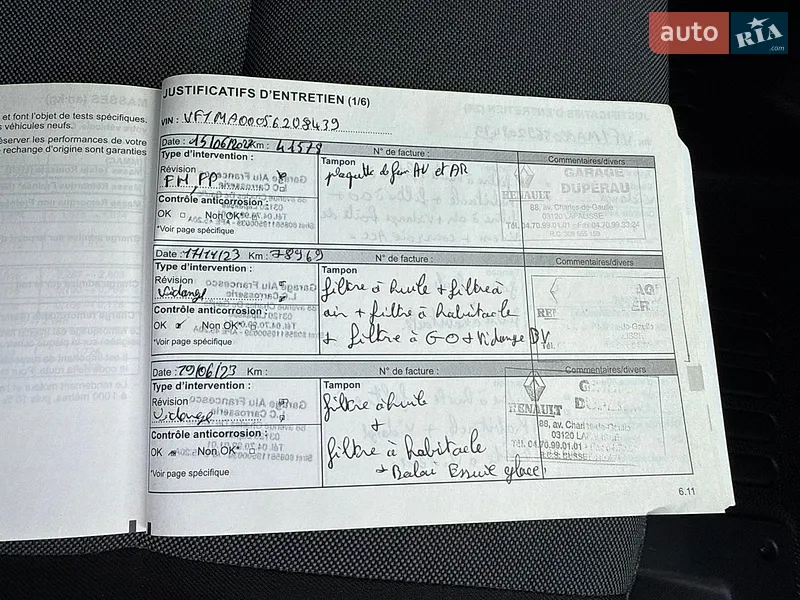 auto RIA .com
et font l'objet de tests spécifiques.
véhicules neufs.
réserver les performances de votre
rechange d'origine sont garanties
JUSTIFICATIFS D'ENTRETIEN (1/6)
VIN : VF1MA00056208439
Date : Km : 41578 N° de facture : Commentaires/divers
Type d'intervention : Tampon
Révision
plaquette de frein AV et AR
FH PP
Contrôle anticorrosion :
OK Non OK*
*Voir page spécifique
RENAULT GARAGE DUPERAU
88, av. Charles-de-Gaulle
03120 LAPALISSE
Tél. 04.70.99.01.01 - Fax 04.70.99.33.24
Date : Km : 78969 N° de facture : Commentaires/divers
Type d'intervention : Tampon
Révision
Vidange
filtre à huile + filtre à
air + filtre à habitacle
+ filtre à GO + Vidange BV
Contrôle anticorrosion :
OK Non OK*
*Voir page spécifique
Date : 19/06/23 Km : N° de facture : Commentaires/divers
Type d'intervention : Tampon
Révision
Vidange
filtre à huile
+
filtre à habitacle
+ Balai Essuie glace
Contrôle anticorrosion :
OK Non OK*
*Voir page spécifique
RENAULT
88, av. Charles-de-Gaulle
03120
Tél. 04.70.99.01.01
6.11